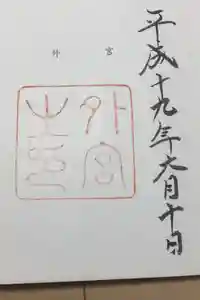 平成十九年六月十日
外宮
外宮
之印